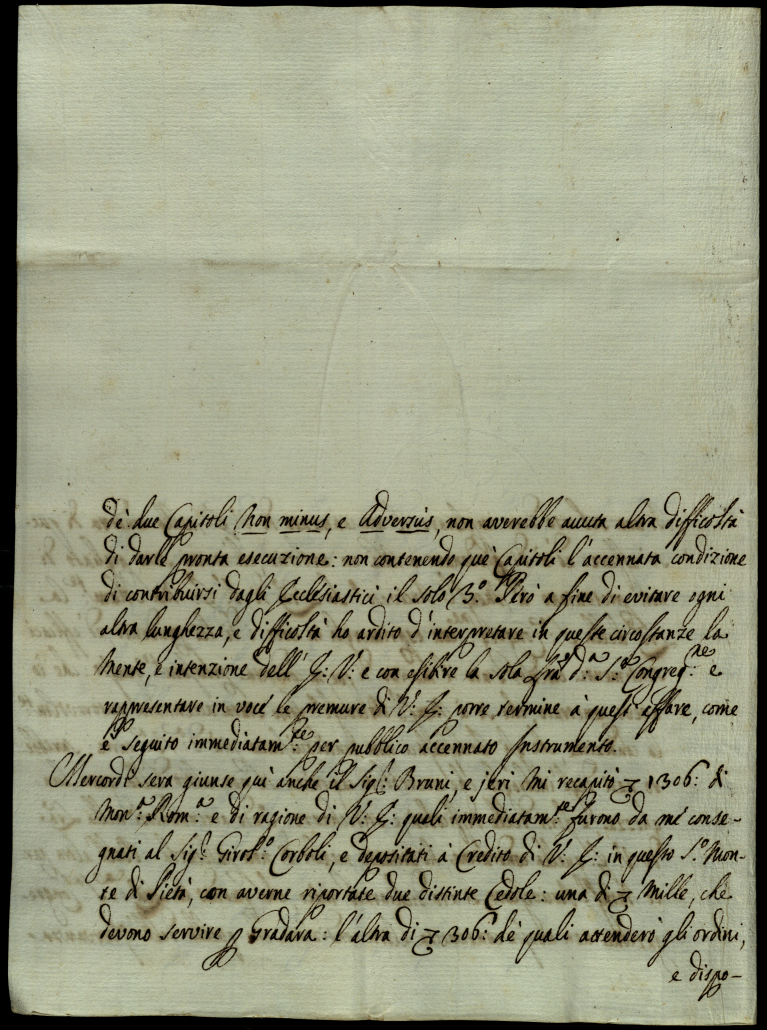 de due Capitoli Non minus, e Adversus, non averebbe auuta altra difficoltà
di darle pronta esecuzione: non contenendo que Capitoli l'accennata condizione
di contribuirsi dagli Ecclesiastici il solo 3.º Però a fine di evitare ogni
altra lunghezza, e difficoltà ho ardito d'interpretare in queste circostanze la
Mente, e intenzione dell' E: V: e con esibire la sola Lra d.ª S.ª Congreg.ne e
rappresentare in voce le premure di V: E: porre termine à quest'affare, come
è seguito immediatam.te per pubblico accennato Instrumento.
Mercordì sera giunse quì anche il Sig.r Bruni, e jeri mi recapitò 1306: di
Mon.ª Rom.ª e di ragione di V: E: quali immediatam.te furono da mé conse-
gnati al Sig.r Girol.º Corboli, e depositati à Credito di V: E: in questo S.º Mon-
te di Pietà, con averne riportate due distinte Cedole: una di Mille, che
devono servire p Gradara: l'altra di 306: de quali attenderò gli ordini,
e dispo-